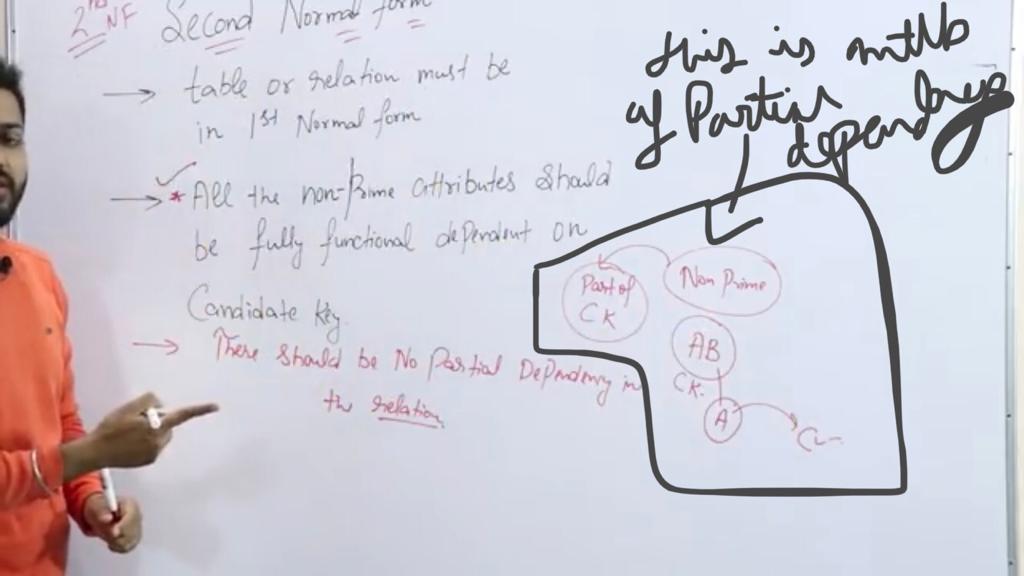 2nd NF Second Normal form
→ table or relation must be
in 1st Normal form
→ * All the non-Prime attributes Should
be fully functional dependent on
Candidate key.
→ There Should be No Partial Dependency in
the relation.
this is
of Partial
Part of
CK
Non Prime
AB
CK.
A
C